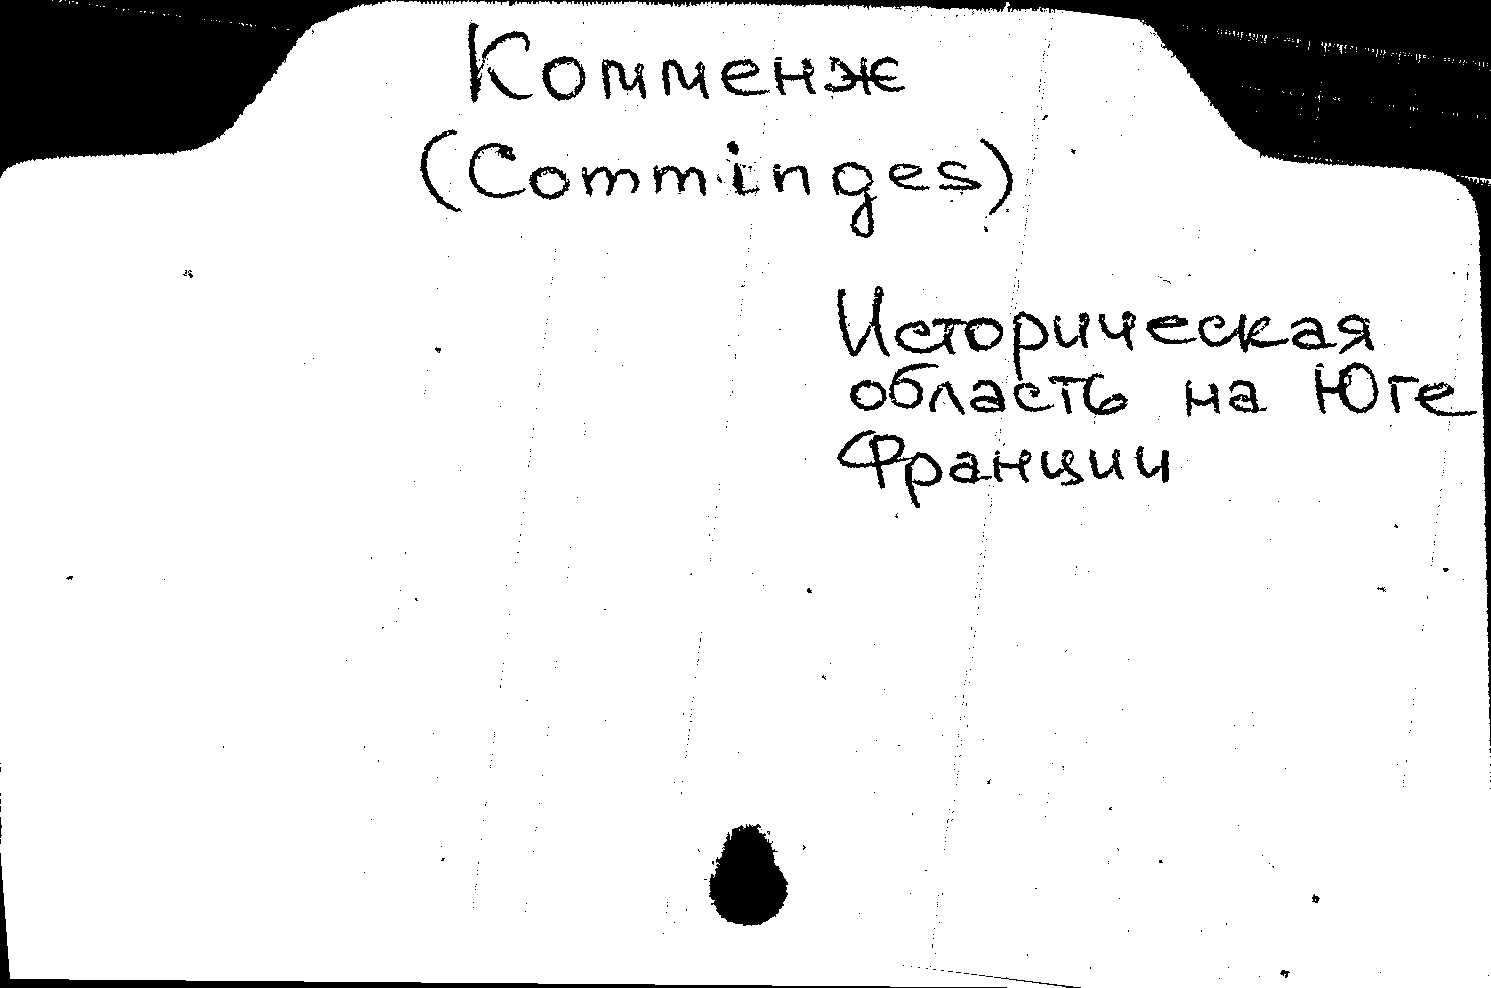 Комменж
(Comminges)
Историческая
область на Юге
Франции